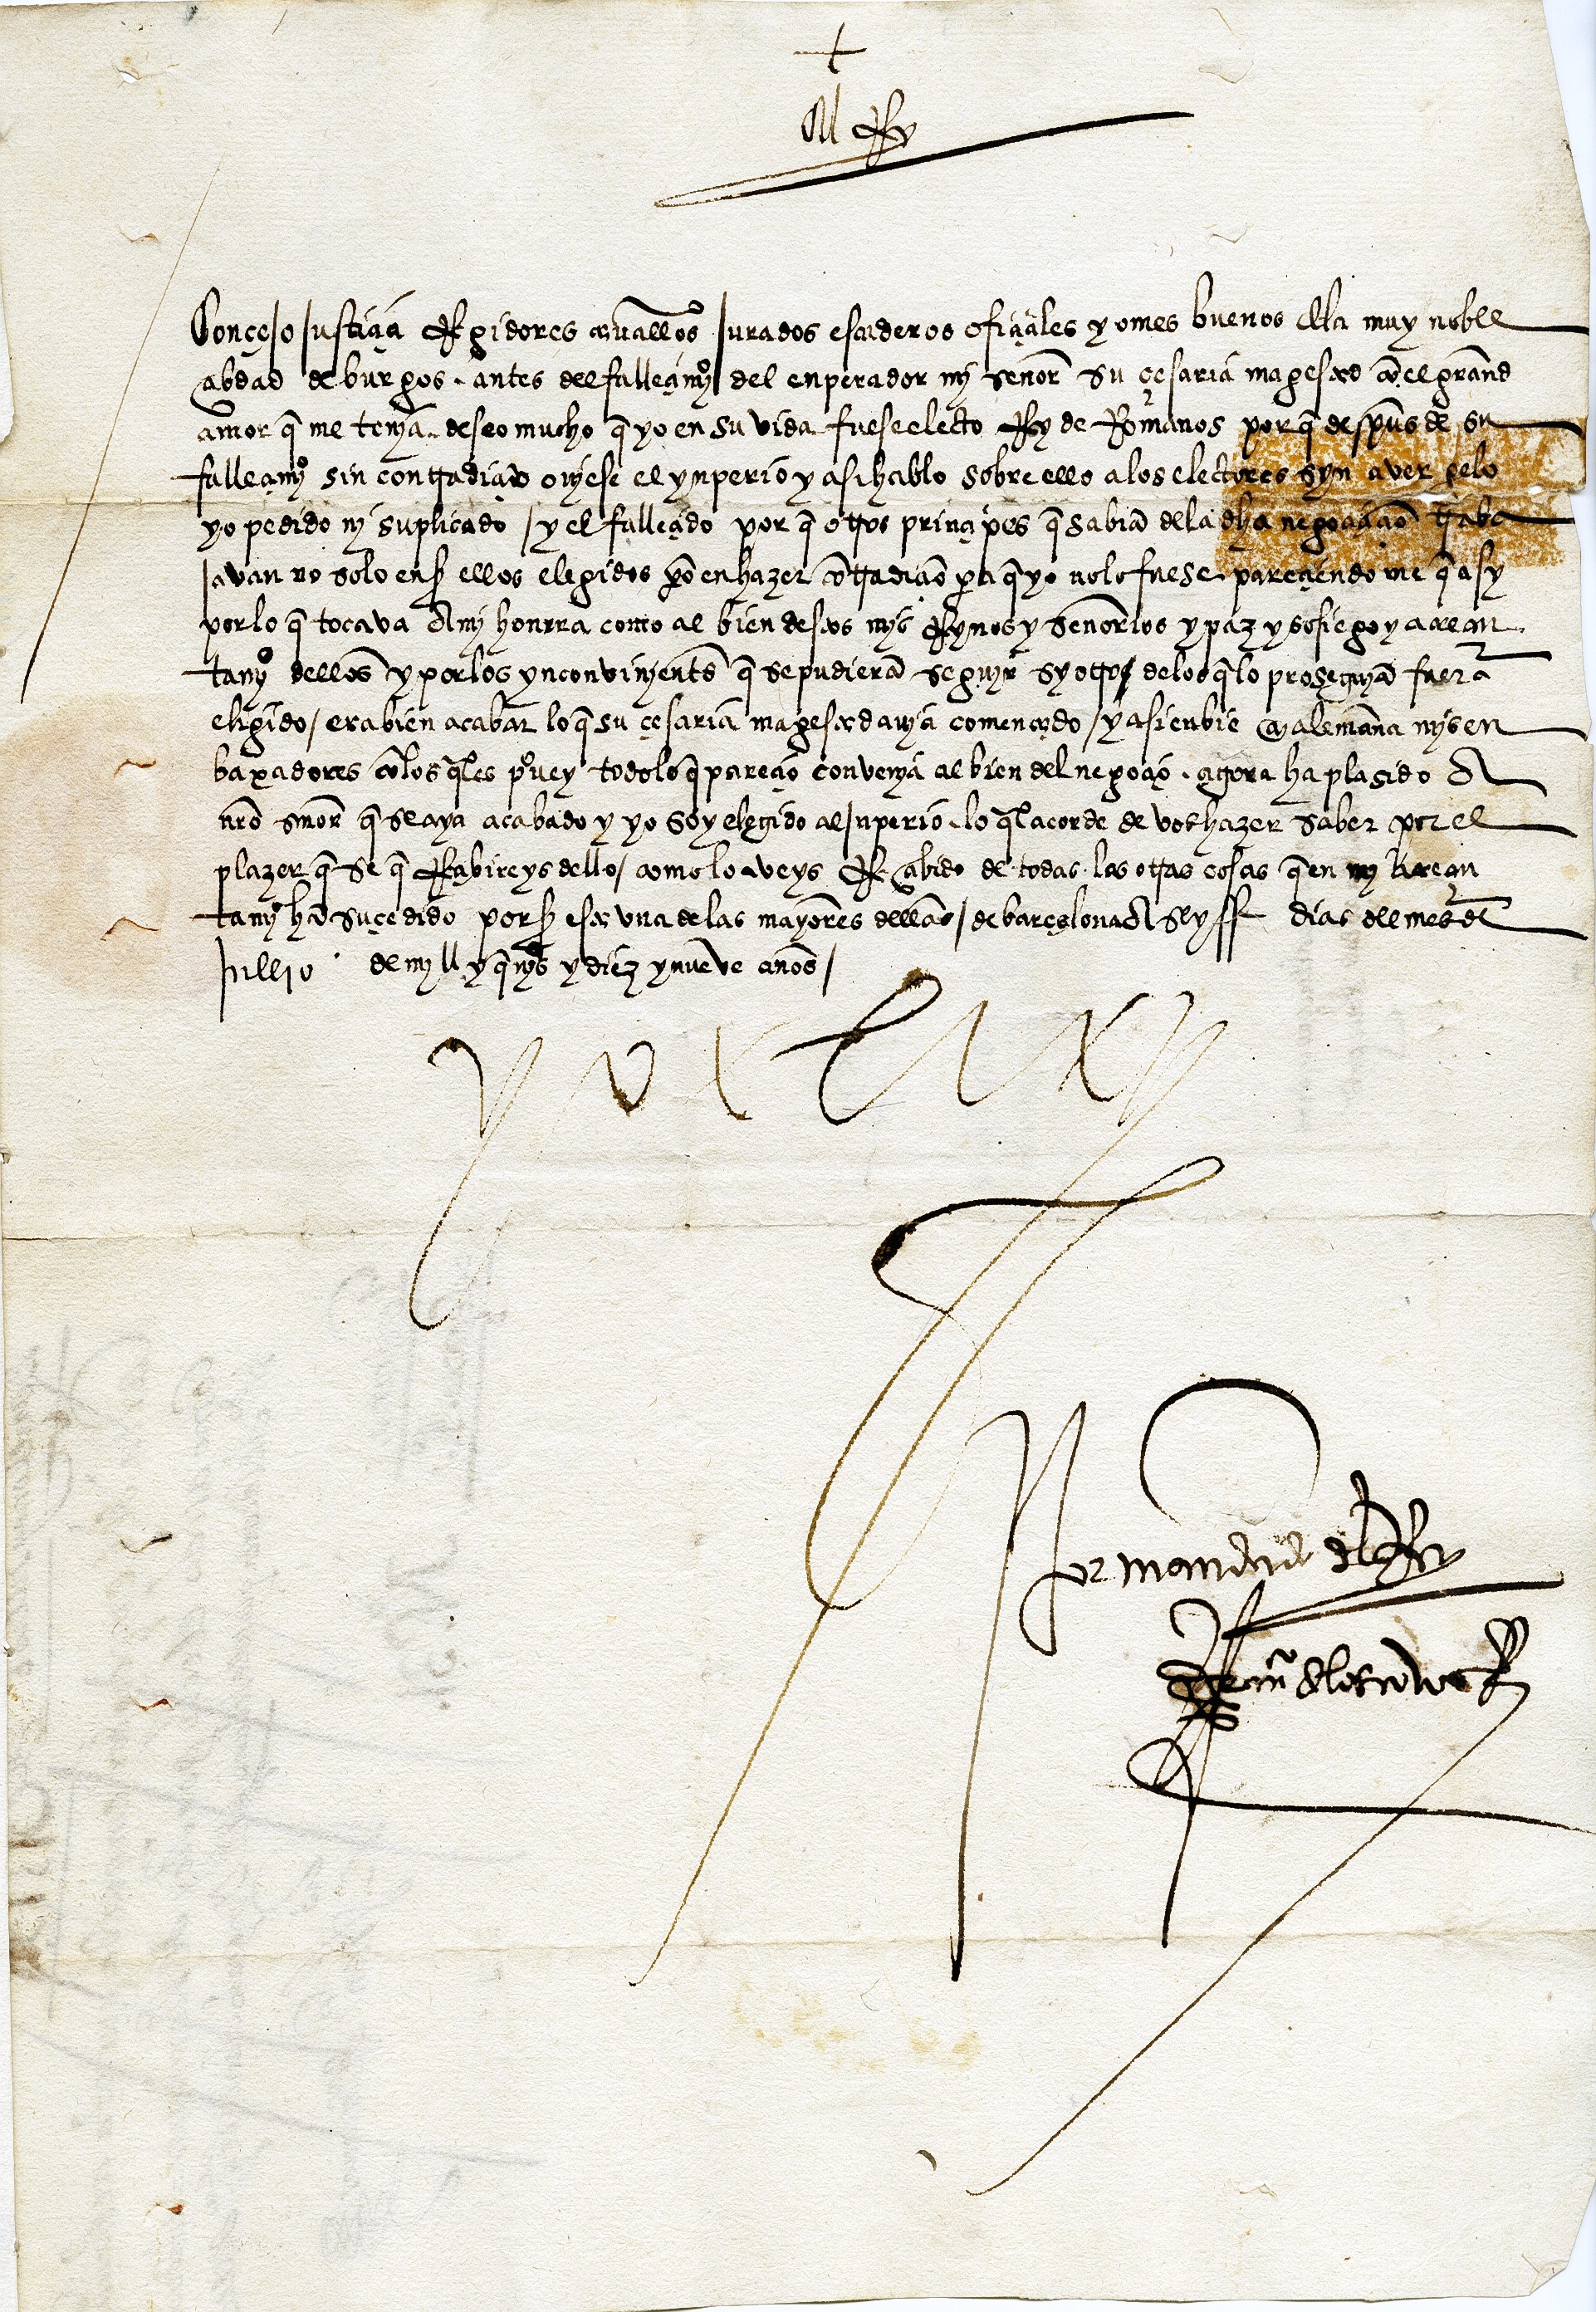 +
El Rey
Conçejo justiçia Regidores cavalleros jurados escuderos ofiçiales y omes buenos de la muy noble
çibdad de burgos. antes del falleçimyº del enperador mi señor su çesaria magestad cō el grand
amor q̄ me tenya. deseo mucho q̄ yo en su vida fuese electo Rey de Romanos por q̄ despues de su
falleçimyº sin contradiçiō oviese el ynperio y asi hablo sobre ello a los electores syn aver gelo
yo pedido ni suplicado / y el falleçido por q̄ otros prinçipes q̄ sabiā de la dha negoçiaçiō traba
javan no solo en ser ellos elegidos pō en hazer cōtradiçiō pa q̄ yo no lo fuese. pareçiendo me q̄ asy
por lo q̄ tocava A mi honrra como al bien destos mis Reynos y señorios y paz y sosiego y acreçen
tamyº dellos y por los ynconvinientes q̄ se pudierā seguyr sy otro de los q̄ lo proseguyā fuera
eligido / era bien acabar lo q̄ su çesaria magestad avya començado / y asi enbie en alemaña mis en
baxadores cō los q̄les provey todo lo q̄ pareçio convenya al bien del negoçio. agora ha plasido A
nrō señor q̄ se aya acabado y yo soy elegido al ynperio. lo q̄l acorde de vos hazer saber por el
plazer q̄ se q̄ Reçibireys dello / como lo aveys Reçibido de todas las otras cosas q̄ en mi acreçen
tamyº hā suçedido por ser esta una de las mayores dellas / de barçelona A seys dias del mes de
jullio de mill y quiºs y diez y nueve años /
yo el rey
Por mandado del Rey
frᶜᵒ de los covos